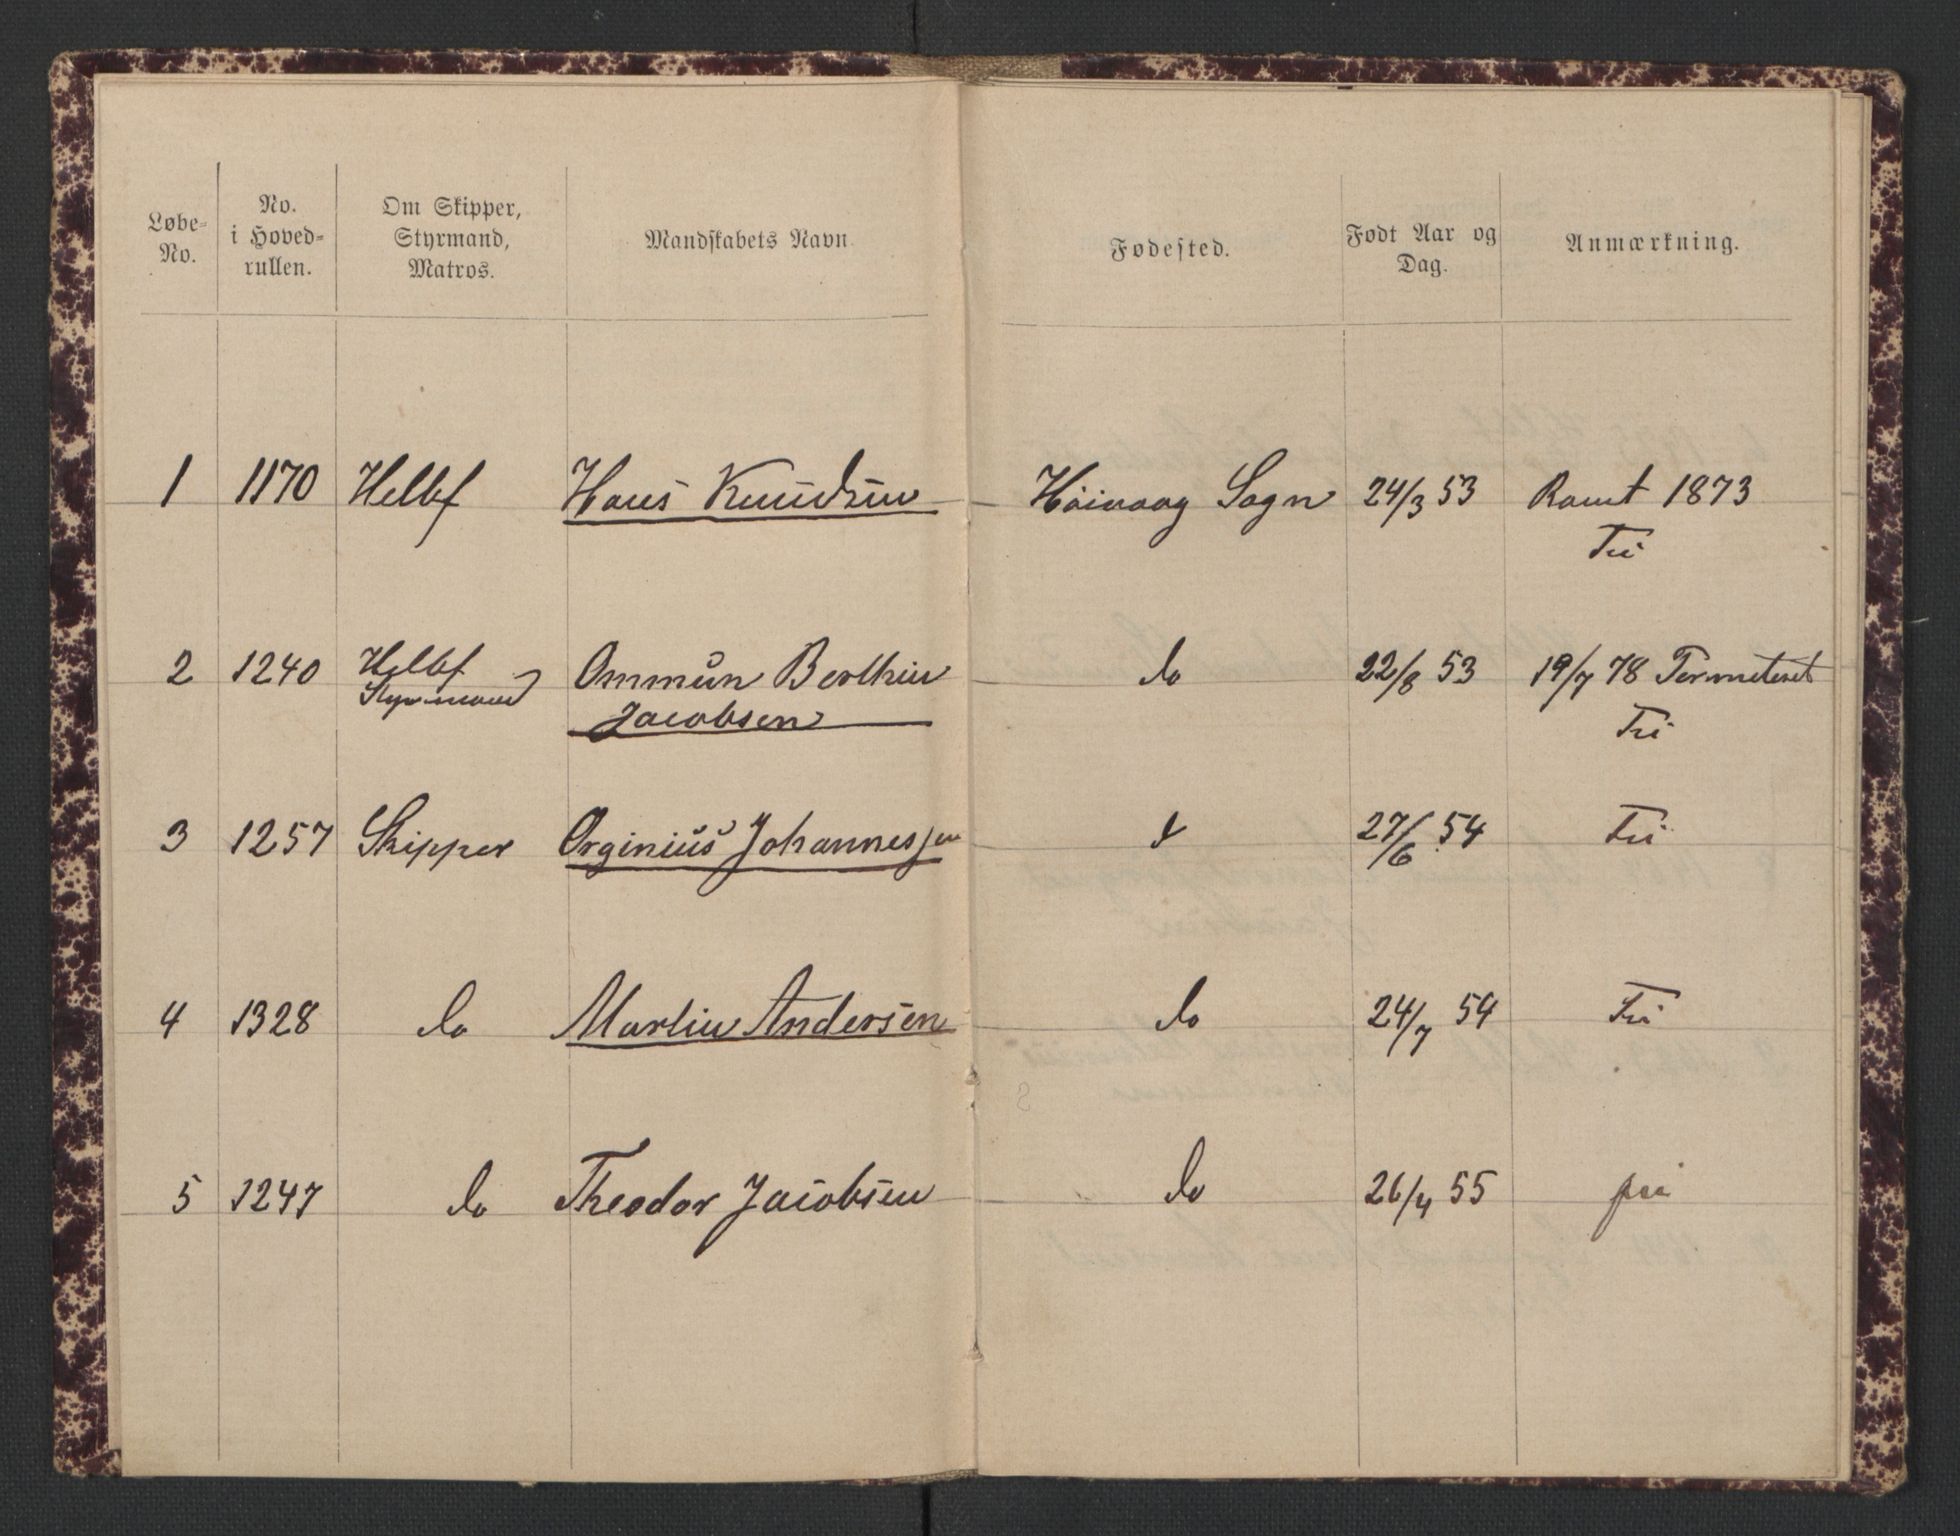 Løbe-No. No. i Hoved-rullen. Om Skipper, Styrmand, Matros. Mandskabets Navn. Fødested. Født Aar og Dag. Anmærkning.
1 1170 Helbf Hans Knudsen Høivaag Sogn 24/3 53 Romt 1873
Fri
2 1240 Helbf Ommun Berthin do 22/8 53 19/7 78 Permiteret
Styrmand Jacobsen Fri
3 1257 Skipper Orginius Johannessen 27/6 54 Fri
4 1328 do Martin Andersen do 24/7 54 Fri
5 1247 do Theodor Jacobsen do 26/4 55 fri